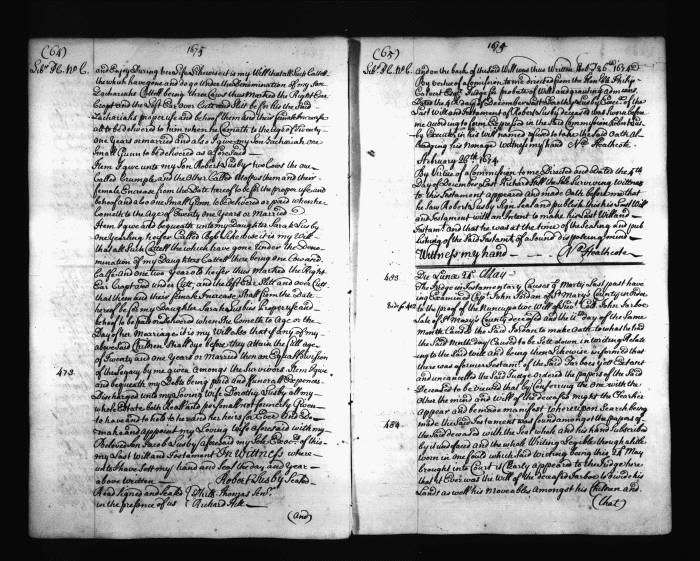 (64)
1675
Lib. Pl. No. 6.
and Enjoy During her Life Likewise it is my Will that all such Cattell
the which have gone and do go Under the Denomination of my Son
Zachariahs Cattell being three Cows thus Marked the Right Ear
Cropt and the Left Ear over Cutt and Slitt be for his the Said
Zachariahs proper use and behoof them and their female Increase
all to be delivered to him when he Cometh to the Age of Twenty
one Years or married and also I give my Son Zachariah one
Small Gunn to be delivered as aforesaid
Item I give unto my Son Robert Susby two Cows the one
Called Crumple and the Other Called Mopus them and their
female Encrease from the Date hereof to be for his proper use and
behoof and also one Small Gunn to be delivered or paid when he
Cometh to the Age of Twenty one Years or Married
Item I give and bequeath unto my Daughter Sarah Susby
one Yearling heifer Called Likewise it is my Will
that all Such Cattell the which have gone Under the Deno-
mination of my Daughters Cattell there being one Cow and
Calfe and one two Year Old heifer thus Marked the Right
Ear Cropt and under Cutt, and the Left Ear Slitt and over Cutt
that them and their female Increase Shall from the Date
hereof be for my Daughter Sarah Susbies proper use and
behoof to be paid or Delivered when She Cometh to Age or the
Day of her Marriage it is my Will also that if any of my
abovesaid Children Shall dye before they attain the full age
of Twenty and one Years or Married then an Equall Division
of the Legacy by me given Amongst the Survivors Item I give
473.
and bequeath my Debts being paid and funerall Expences
Discharged unto my Loving Wife Dorothy Susby all my
whole Estate both Reall and personall not formerly Given
to have and to hold to her and her heirs for Ever And I do
make and appoint my Loving Wife aforesaid with my
Beloved Son Jacob Susby aforesaid my Sole Execrs. of this
my Last Will and Testament In Witness where
unto I have Sett my hand and Seal the Day and Year
above Written Robert Susby Seald
Read Signed and Sealed Thomas Senr.
in the presence of us Richard Hill
(And)
(65)
1674
Lib. Pl. No. 6.
And on the back of the Said Will was thus Written
By virtue of a Comission to me directed from the Honble. Philip
Calvert Esqr. Judge for probate of Wills and granting admcons.
Dated the 4th Day of December Last Dorothy Susby Execx. of the
Last Will and Testament of Robert Susby deceased was Sworn before
me according to form Expressed in the Said Commission
by Executor in his Will named refused to take the Said Oath al-
leadging his nonage Witness my hand No. Heathcote
February 20th. 1674
By Virtue of a Commission to me Directed and Dated the 4th
Day of December Last Richard Hill the Sole Surviving Witness
to this Testament appeared and made Oath before me that
he Saw Robert Susby Sign Seal and publish this his Last Will
and Testament with an Intent to make his Last Will and
Testamt. And that he was at the time of the Sealing and pub-
lishing of the Said Testamt. of a Sound disposeing mind
Witness my hand No. Heathcote
483.
Die Lunæ 24 May
The Judge in Testamentary Causes ye Morty. Last past have
ing Examined Capt. John Jordan of St. Mary's County in Orde
to the proof of the Nuncupative Will of Lieut. Coll. John Jarboe
Late of St. Mary's County deceased and the 11th day of the Same
Month Caused the Said Jordan to make Oath to what he had
the Said Ninth Day Caused to be Sett down in writing Relate-
ing to the Said Will and being then Likewise informed that
there was a former Testamt. of the Said Jarboe's yett Extant
and uncancelled the Said Judge Ordered the papers of the Said
Deceased to be Viewed that by Conferring the One with the
Other the mind and Will of the deceased might the Clearer
Appear and be made manifest Whereupon Search being
made the Said Testament was found amongst the papers of
484.
the Said deceased with the Seal whole and his hand Subscribed
by it undefaced and the whole Writing Legible though a little
worn in one fould which said Writing being this 24 May
brought into Court it Clearly appeared to the Judge here
that it Ever was the Will of the deceased Jarboe to divide his
Lands as well his Moveables Amongst his Children and
(That)